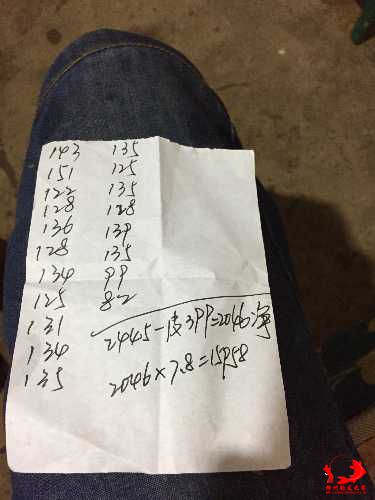 143 135
151 125
122 135
128 128
136 139
128 135
134 99
125 82
131
134
135
2445-皮399=2046净
2046×7.8=15958